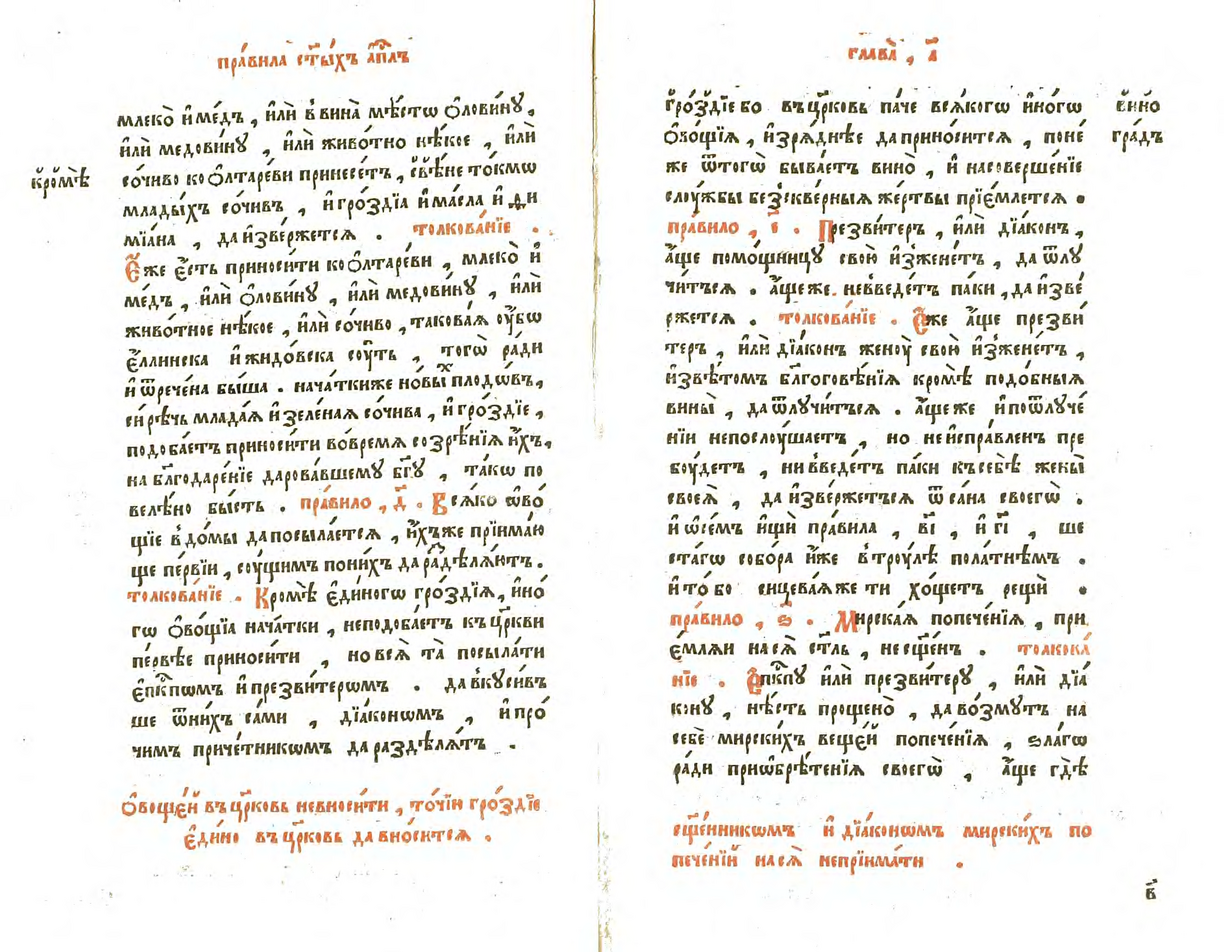 пра́вила ст҃ы́хъ а҆п҃лъ
млеко̀ и҆ ме́дъ , и҆лѝ в̾ вина̀ мѣ́стѡ ѻ҆лови́нꙋ ,
и҆лѝ медови́нꙋ , и҆лѝ живо́тно нѣ́кое , и҆лѝ
кро́мѣ
со́чиво ко ѻ҆лтаре́ви принесе́тъ , свѣ́не то́кмѡ
млады́хъ со́чивъ , и҆ гро́здїа и҆ ма́сла и҆ ѳи
мїа́на , да и҆зве́ржетсѧ . толкова́нїе .
Е҆́же є҆́сть приноси́ти ко ѻ҆лтаре́ви , млеко̀ и҆
ме́дъ , и҆лѝ ѻ҆лови́нꙋ , и҆лѝ медови́нꙋ , и҆лѝ
живо́тное нѣ́кое , и҆лѝ со́чиво , такова́ѧ ᲂу҆́бѡ
є҆́ллинска и҆ жидо́вска сᲂу́ть , тогѡ̀ ра́ди
и҆ ѿрече́на бы́ша . нача́тки же но́вы х плодѡ́въ ,
си́рѣчь млада́ѧ и҆ зеле́наѧ со́чива , и҆ гро́здїе ,
подоба́етъ приноси́ти во́ времѧ созрѣ́нїѧ и҆́хъ ,
на бл҃годаре́нїе дарова́вшемꙋ бг҃ꙋ , та́кѡ по
веле́но бы́сть . пра́вило , д҃ . Всѧ́ко ѡ҆во́
щїе в̾ до́мы да посыла́етсѧ , и҆́хъ же прїима́ю
ще пе́рвїи , сᲂу́щимъ по ни́хъ да раздѣлѧ́ютъ .
толкова́нїе . Кро́мѣ є҆ди́ногѡ гро́здїѧ , и҆но́
гѡ ѻ҆во́щїа нача́тки , не подоба́етъ къ цр҃кви
пе́рвѣе приноси́ти , но всѧ̀ та̀ посыла́ти
є҆пⷭ҇кпѡмъ и҆ презви́терѡмъ . да вкꙋси́въ
ше ѿ ни́хъ са́ми , дїа́конѡмъ , и҆ про́
чимъ приче́тникѡмъ да раздѣлѧ́тъ .
Ѻ҆воще́й въ цр҃ковь не вноси́ти , то́чїю гро́здїе
є҆ди́но въ цр҃ковь да вно́ситсѧ .
глава̀ , а҃
гро́здїе бо въ цр҃ковь па́че всѧ́когѡ и҆но́гѡ
вино
гра́дъ
ѻ҆во́щїѧ , и҆зрѧ́днѣе да прино́ситсѧ , поне́
же ѿ тогѡ̀ быва́етъ вино̀ , и҆ на соверше́нїе
слᲂу́жбы без̾скве́рныѧ же́ртвы прїе́млетсѧ .
пра́вило , є҃ . Презви́теръ , и҆лѝ дїа́конъ ,
а҆́ще помо́щницꙋ свою̀ и҆зжене́тъ , да ѿлꙋ
чи́тьсѧ . а҆́ще же не введе́тъ па́ки , да и҆зве́
ржетсѧ . толкова́нїе . Е҆́же а҆́ще презви́
теръ , и҆лѝ дїа́конъ женᲂу̀ свою̀ и҆зжене́тъ ,
и҆звѣ́томъ бл҃гоговѣ́нїѧ кро́мѣ подо́бныѧ
вины̀ , да ѿлꙋчи́тьсѧ . а҆́ще же и҆ по ѿлꙋче́
нїи не послᲂу́шаетъ , но не и҆спра́вленъ пре
бᲂу́детъ , ни введе́тъ па́ки къ себѣ̀ жены̀
своеѧ̀ , да и҆зве́ржетьсѧ ѿ са́на своегѡ̀ .
и҆ ѡ҆ се́мъ и҆щѝ пра́вила , в҃і , и҆ г҃і , ше
ста́гѡ собо́ра и҆́же в̾ трᲂу́лѣ пола́тнѣмъ .
и҆ то́ бо сицева́ѧ же ти хо́щетъ рещѝ .
пра́вило , ѕ҃ . Мирска́ѧ попече́нїѧ , при
е́млѧи на сѧ̀ ст҃ль , не сщ҃е́нъ . толкова́
нїе . Е҆пⷭ҇кпꙋ и҆лѝ презви́терꙋ , и҆лѝ дїа́
конꙋ , нѣ́сть проще́но , да во́змутъ на
себѐ мирски́хъ веще́й попече́нїѧ , ѕла́гѡ
ра́ди приѡбрѣ́тенїѧ своегѡ̀ , а҆́ще гдѣ̀
сщ҃е́нникѡмъ и҆ дїа́конѡмъ мирски́хъ по
пече́нїй на сѧ̀ не прїима́ти .
в҃